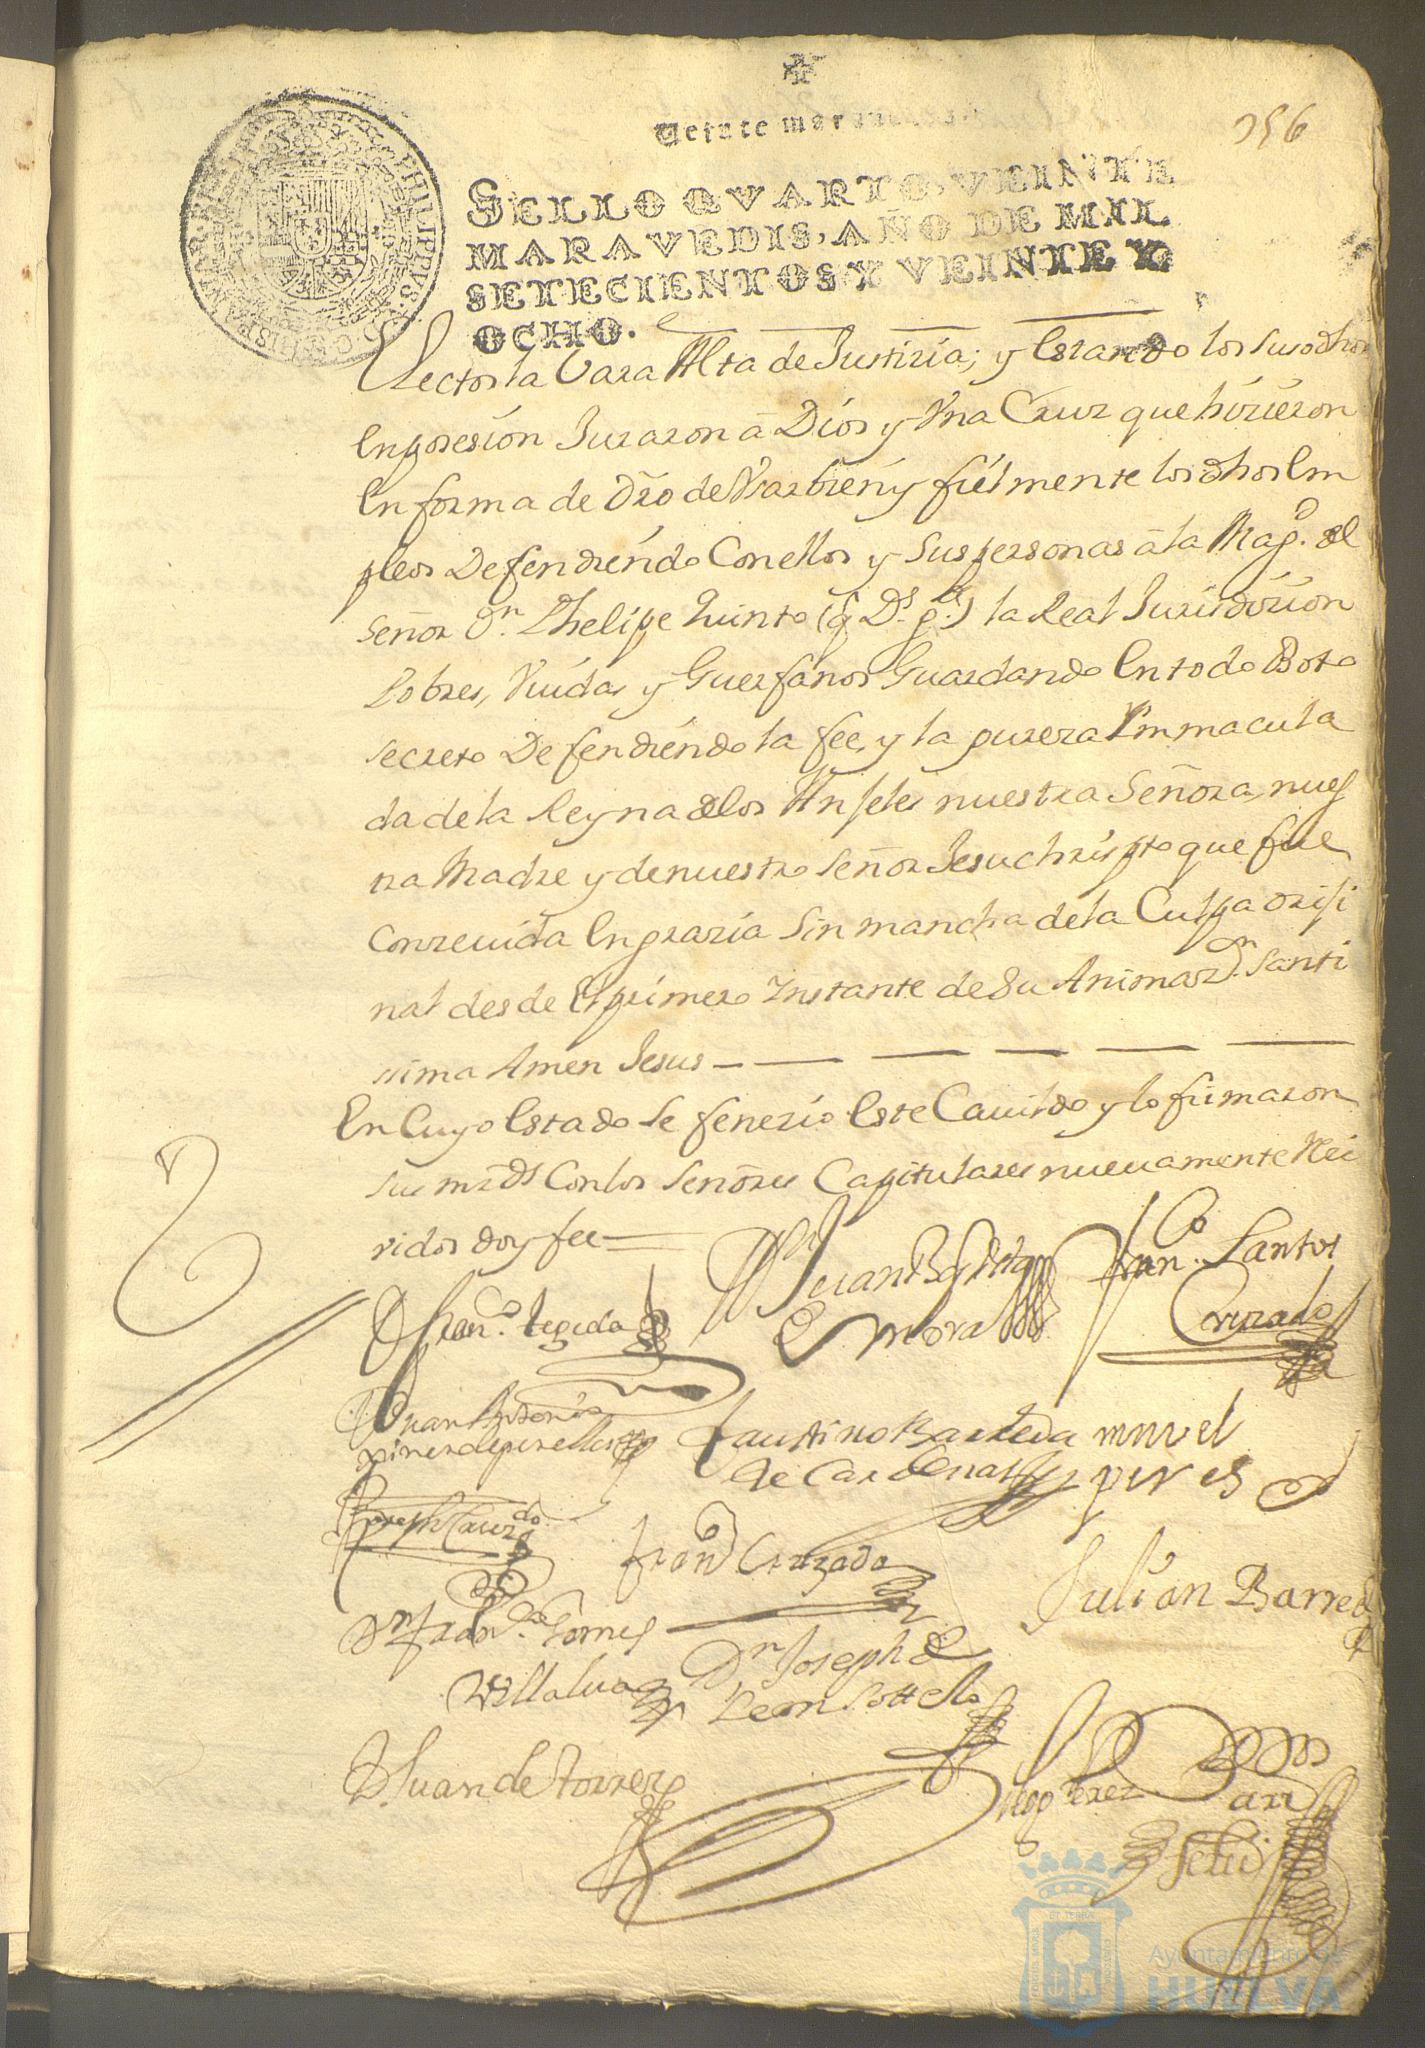 Veinte maravedis
156
PHILIPPVS V D G HISPANIAR REX
SELLO QVARTO, VEINTE
MARAVEDIS, AÑO DE MIL
SETECIENTOS Y VEINTE Y
OCHO.
Rectos la Vara Alta de Justizia; y Estando los susodhos
En posesion Juraron â Dios y Vna Cruz que hizieron
En forma de dro de Vsar bien y fielmente los dhos Em
pleos Defendiendo Con ellos y sus personas â la Magd. del
Señor Dn. Phelipe quinto (q Ds. ge.) la Real Jurisdizion
Pobres, Viudas y Guerfanos Guardando En todo Boto
secreto Defendiendo la fee, y la pureza Ymmacula
da de la Reyna de los Anjeles nuestra Señora, nues
tra Madre y de nuestro Señor Jesuchristo que fue
Conzeuida En grazia Sin mancha de la Culpa oriji
nal desde El primero Instante de Su Animazn. Santi
sima Amen Jesus
En Cuyo Estado Se fenezio Este Cauildo y lo firmaron
sus mrds Con los Señores Capitulares nueuamente Rei
vidos doy fee
Dn Juan Baptista
de Mora
Franco. Santos
Cruzado
D Franco. tegida
D Juan Antonio
Faustino Barreda
de Cardenas
mnvel
peres
Joseph Cruzdo
Frano Cruzado
Julian Barreda
Dn Franco. Gomes
Villalua
Dn Joseph de
Leon Sottelo
D. Juan de Torres
Diego Perez
Ayuntamiento de
HUELVA